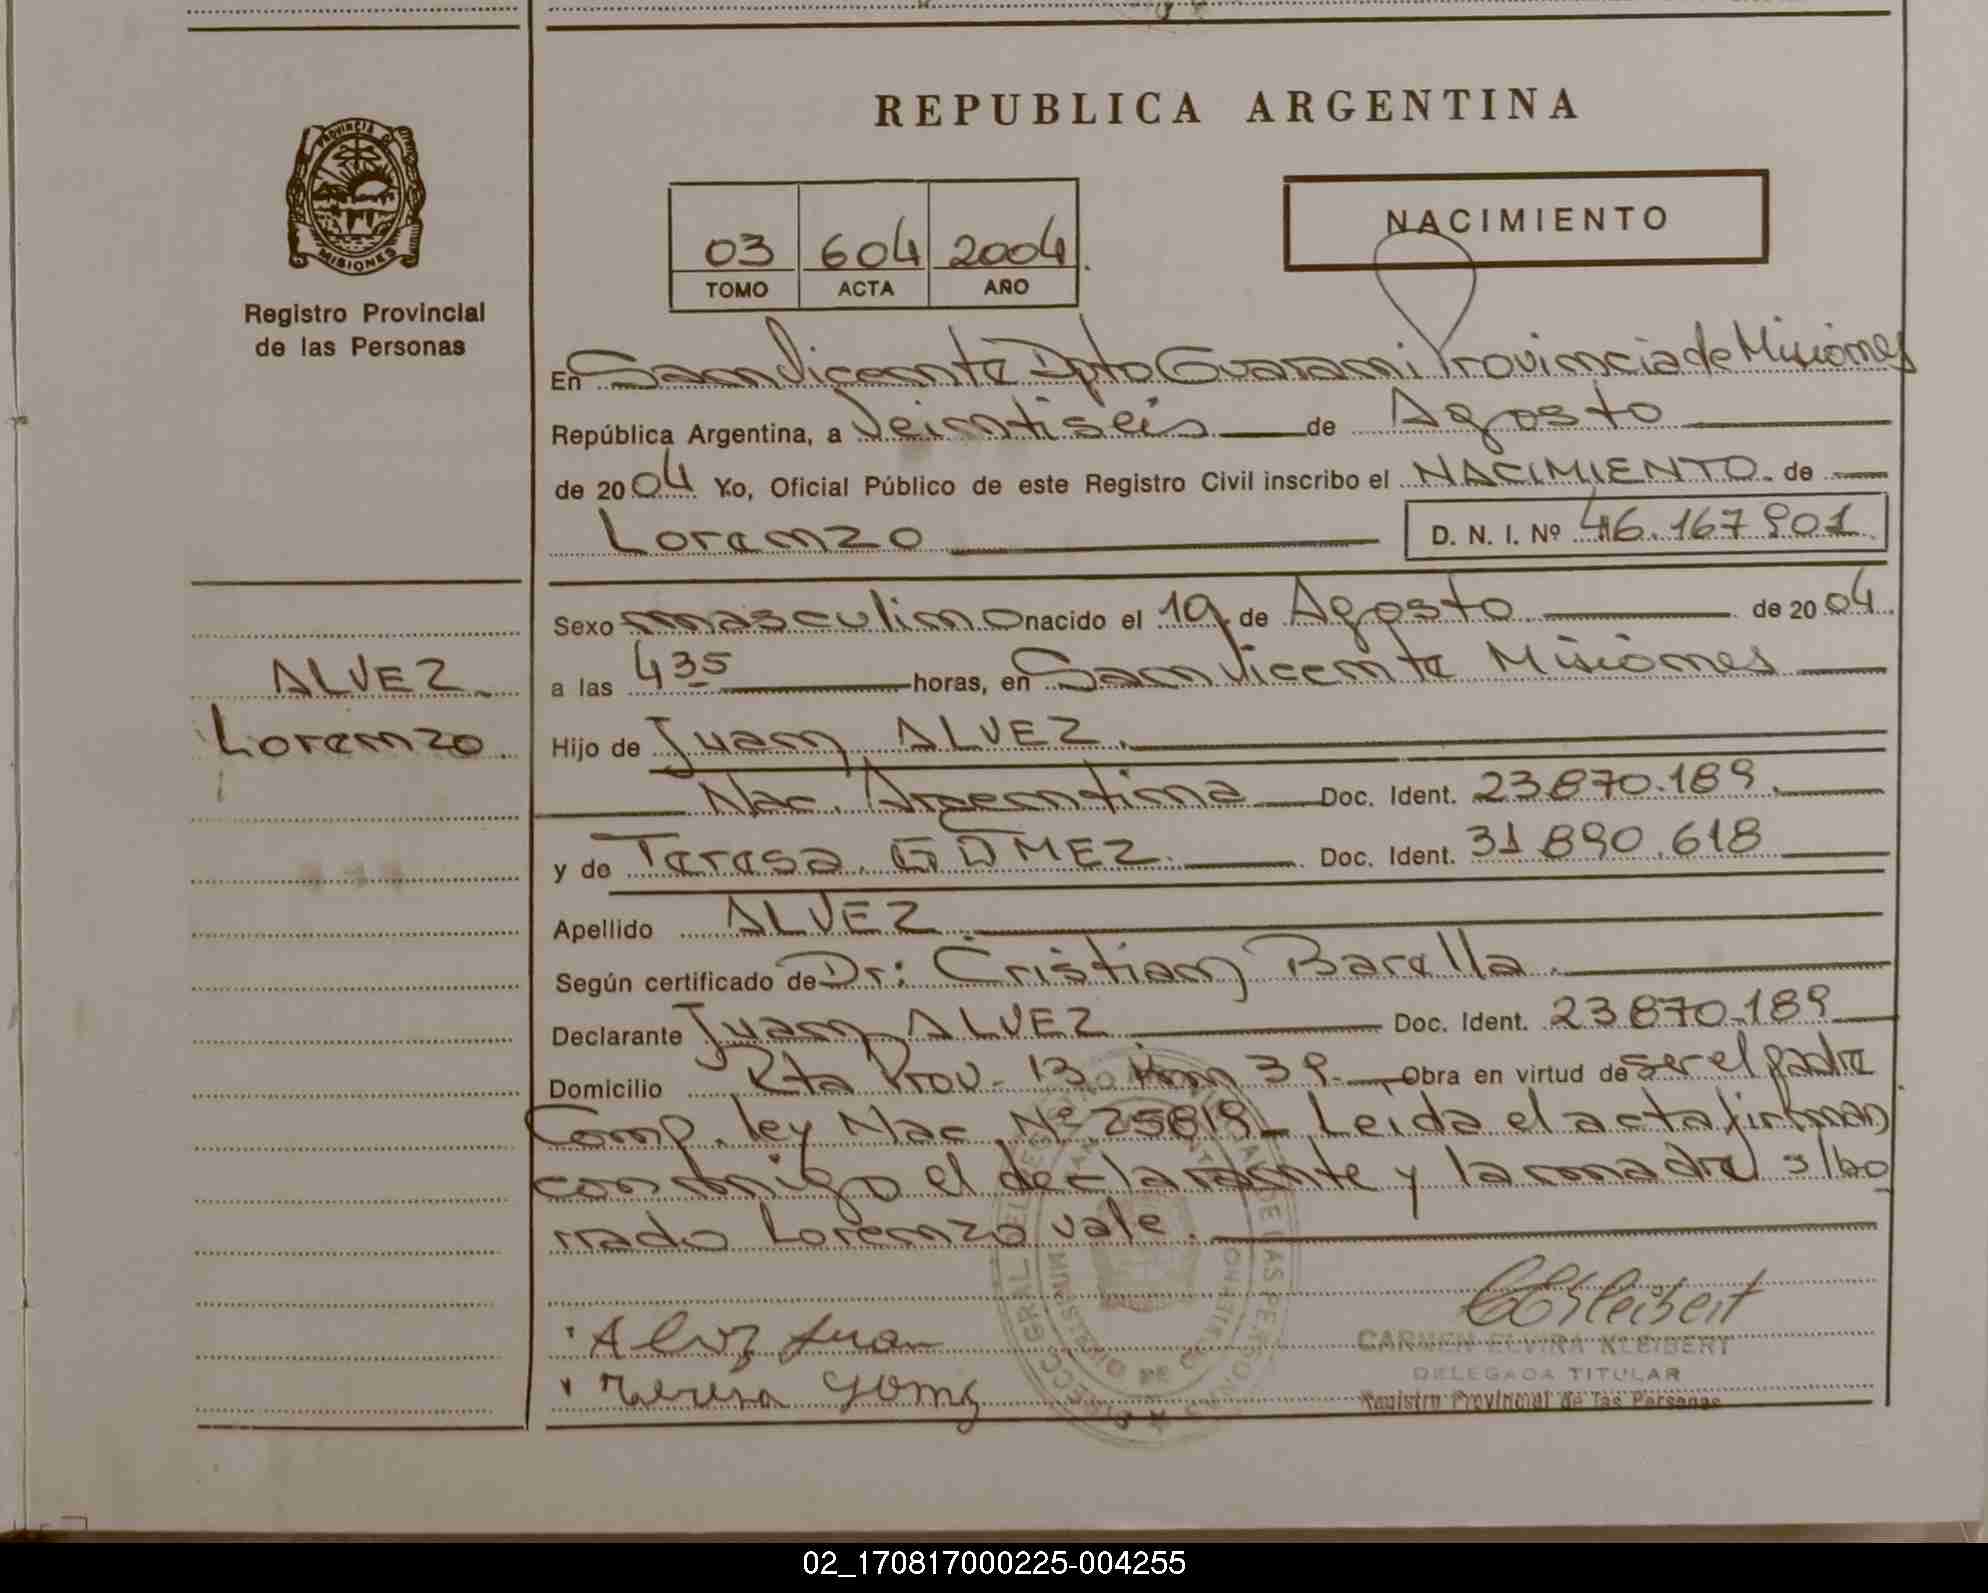 REPUBLICA ARGENTINA
PROVINCIA DE
MISIONES
Registro Provincial
de las Personas
NACIMIENTO
03 604 2004
TOMO ACTA AÑO
En San Vicente Dpto Guarani Provincia de Misiones
República Argentina, a Veintiseis de Agosto
de 2004 Yo, Oficial Público de este Registro Civil inscribo el NACIMIENTO de
Lorenzo D. N. I. Nº 46.167 901
Sexo masculino nacido el 19 de Agosto de 2004
a las 4 35 horas, en San Vicente Misiones
ALVEZ
Lorenzo
Hijo de Juan ALVEZ.
Nac. Argentina Doc. Ident. 23870.189
y de Teresa GOMEZ. Doc. Ident. 31 890.618
Apellido ALVEZ
Según certificado de Dr: Cristian Barella.
Declarante Juan ALVEZ Doc. Ident. 23870.189
Domicilio Rta Prov. 13 Km 39. Obra en virtud de ser el padre
Comp. ley Nac. Nº 25819 Leida el acta firman
conmigo el declarante y la madre s/bo
rrado Lorenzo vale.
Alvez Juan
Teresa Gomez
CARMEN ELVIRA KLEIBERT
DELEGADA TITULAR
Registro Provincial de las Personas
02_170817000225-004255